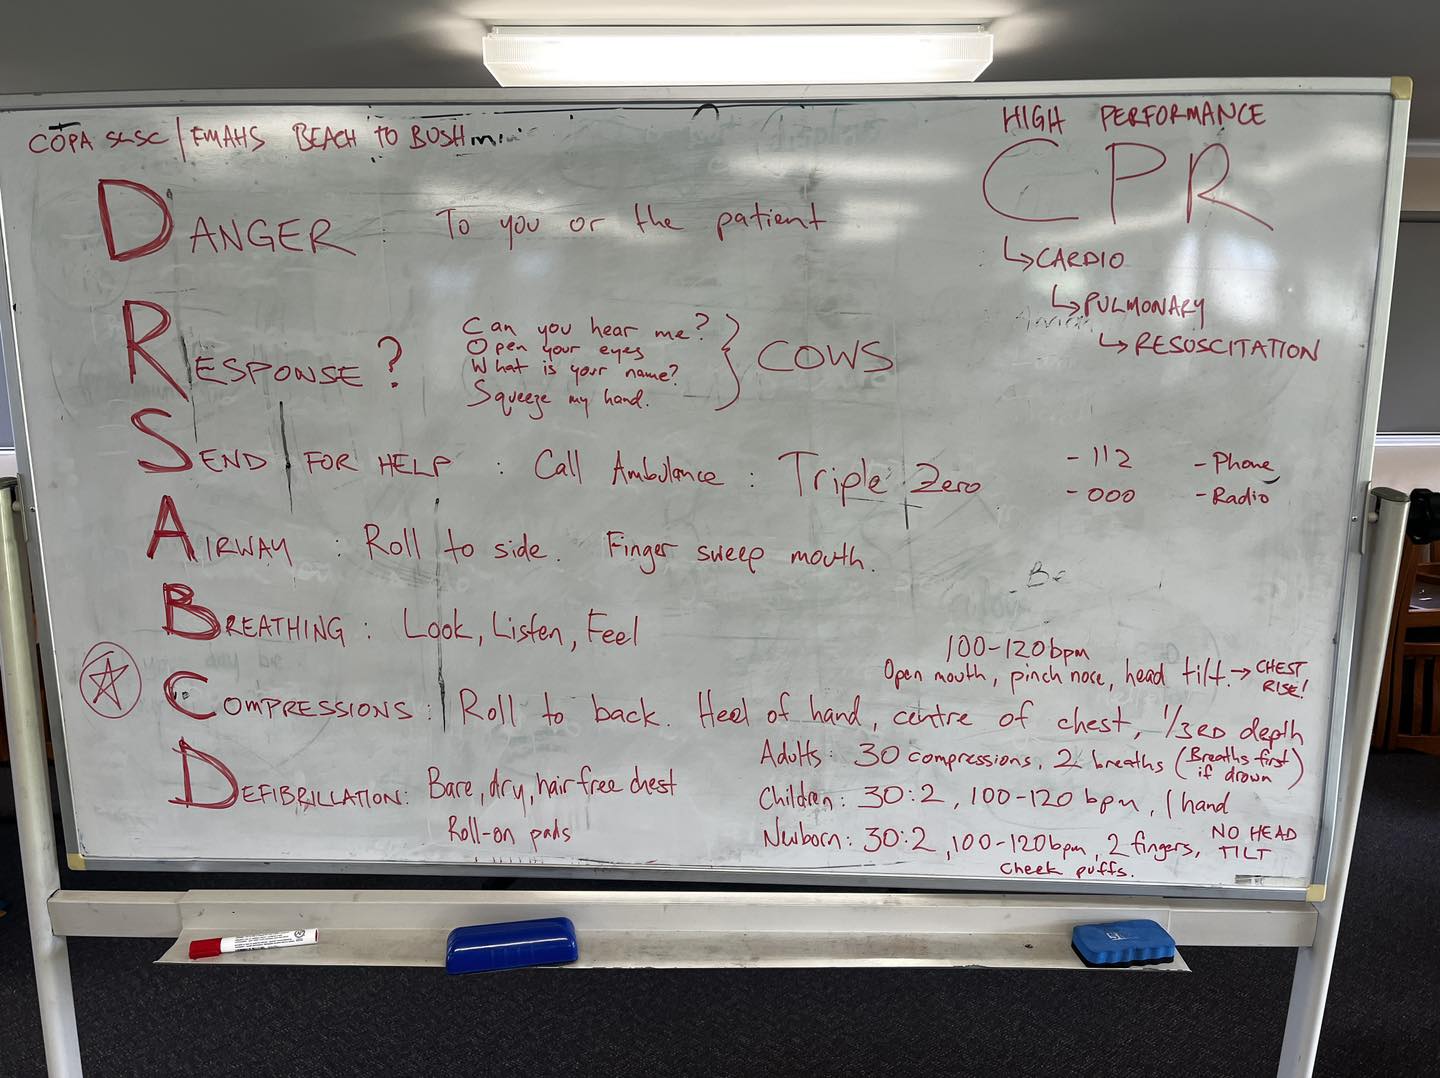 COPA SLSC / EMAHS BEACH TO BUSH
HIGH PERFORMANCE
CPR
↳ CARDIO
↳ PULMONARY
↳ RESOSCITATION
DANGER : To you or the patient
RESPONSE?
Can you hear me?
Open your eyes
What is your name?
Squeeze my hand.
} COWS
SEND FOR HELP : Call Ambulance : Triple Zero
- 112 - Phone
- 000 - Radio
AIRWAY : Roll to side. Finger sweep mouth.
BREATHING : Look, Listen, Feel
100-120bpm
Open mouth, pinch nose, head tilt. → CHEST RISE!
COMPRESSIONS : Roll to back. Heel of hand, centre of chest, 1/3RD depth
Adults: 30 compressions, 2 breaths (Breaths first if drown)
Children: 30:2, 100-120 bpm, 1 hand
Newborn: 30:2, 100-120bpm, 2 fingers, NO HEAD TILT
cheek puffs.
DEFIBRILLATION: Bare, dry, hair free chest
Roll-on pads